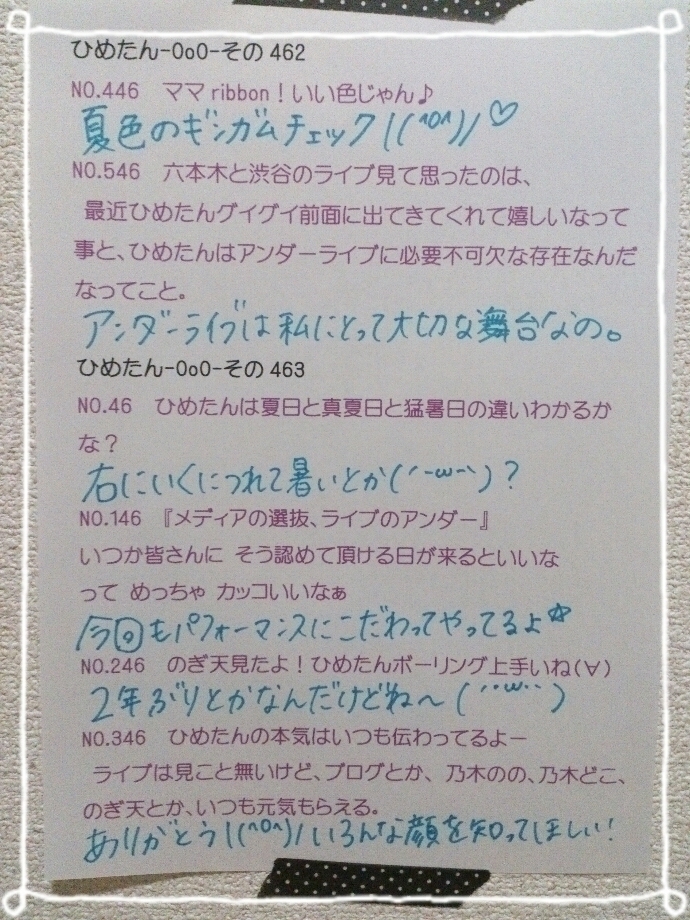 ひめたん-OoO-その 462
NO.446　ママ ribbon！いい色じゃん♪
夏色のギンガムチェック \(^o^)/♡
NO.546　六本木と渋谷のライブ見て思ったのは、
最近ひめたんグイグイ前面に出てきてくれて嬉しいなって
事と、ひめたんはアンダーライブに必要不可欠な存在なんだ
なってこと。
アンダーライブは私にとって大切な舞台なの。
ひめたん-OoO-その 463
NO.46　ひめたんは夏日と真夏日と猛暑日の違いわかるか
な？
右にいくにつれて暑いとか(´-ω-`)？
NO.146　『メディアの選抜、ライブのアンダー』
いつか皆さんに そう認めて頂ける日が来るといいな
って めっちゃ カッコいいなぁ
今回もパフォーマンスにこだわってやってるよ☆
NO.246　のぎ天見たよ！ひめたんボーリング上手いね(∀)
2年ぶりとかなんだけどね〜(´･ω･`)
NO.346　ひめたんの本気はいつも伝わってるよー
ライブは見こと無いけど、ブログとか、乃木のの、乃木どこ、
のぎ天とか、いつも元気もらえる。
ありがとう\(^o^)/いろんな顔を知ってほしい！